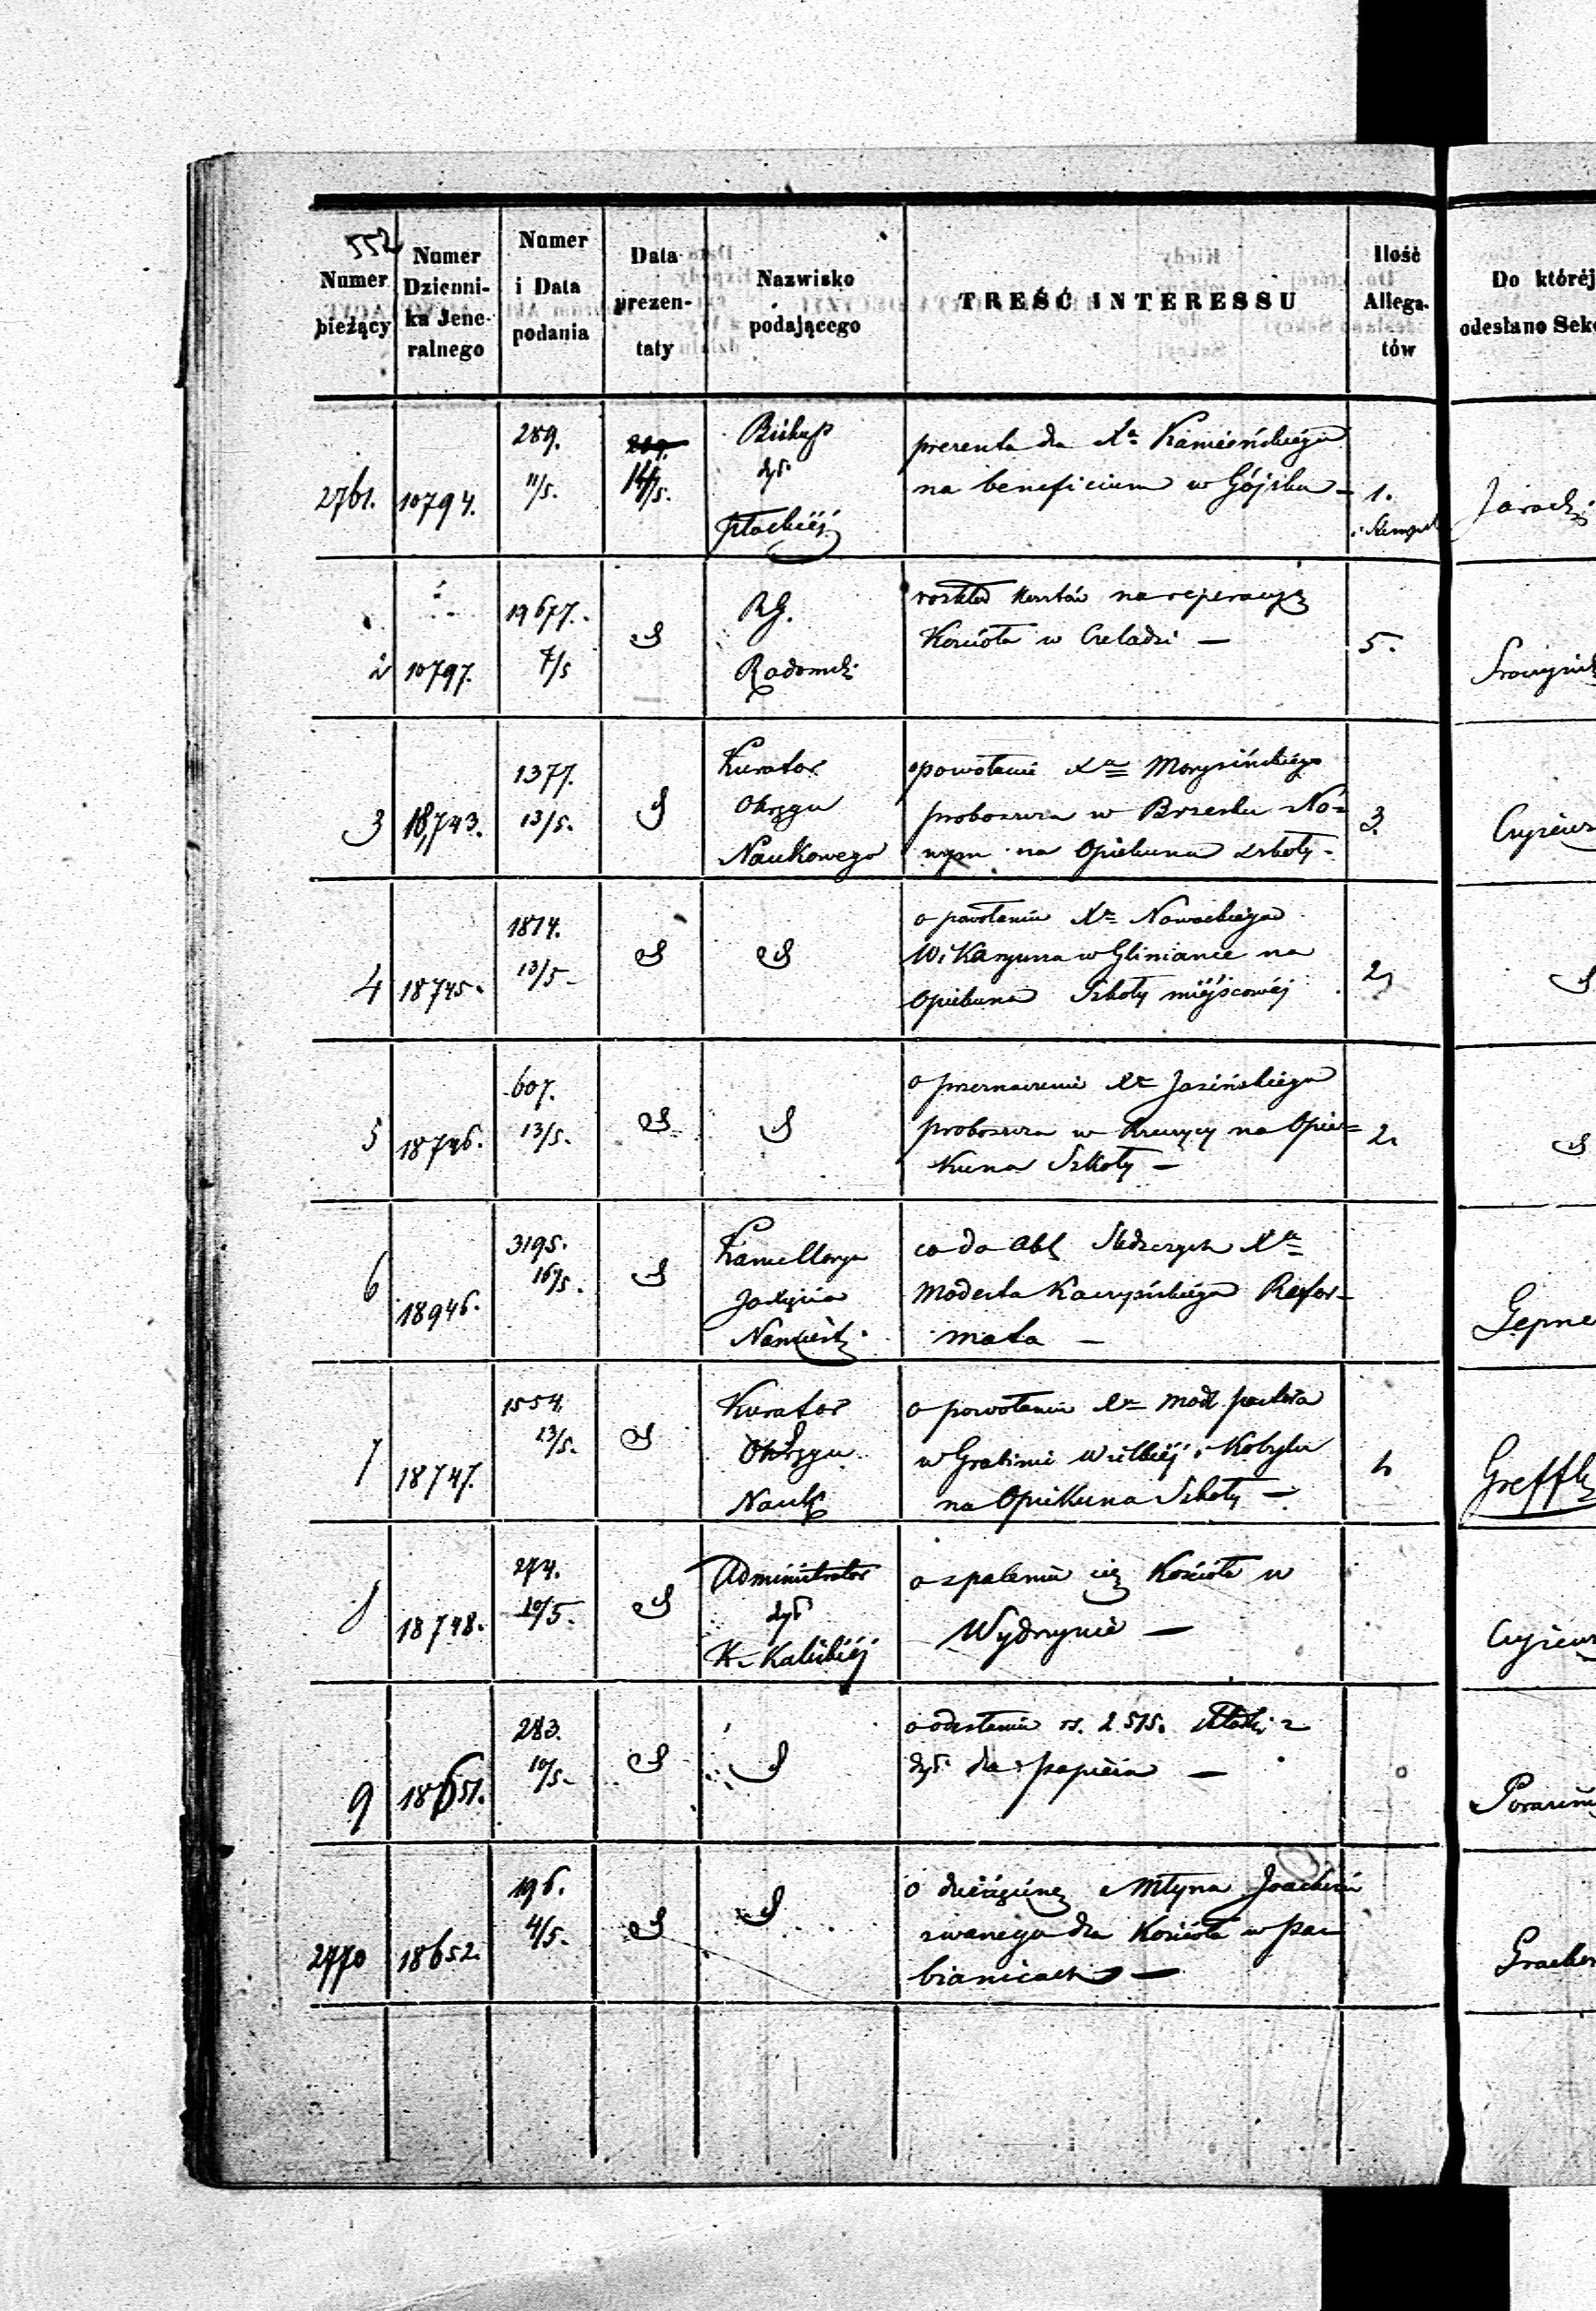 552
Numer bieżący
Numer Dzienni-ka Jene-ralnego
Numer i Data podania
Data prezen-taty
Nazwisko podającego
TREŚĆ INTERESSU
Ilość Allega-tów
Do któréj odesłano
2761.
10794.
289.
11/5.
14/5.
Biskup
dyś
Płockiéj
prezenta dla Xa Kamieńskiego
na beneficium w Gójsku -
1.
i Stempel
2
10797.
19677.
7/5
RG.
Radomsk.
rozkład kosztów na reperacyą
Kościoła w Czeladzi —
5.
3
18,743.
1377.
13/5.
Kurator
Okręgu
Naukowego
powołanie Xa Morysińskiego
proboszcza w Brzesku No=
wym na Opiekuna szkoły -
3.
4
18745.
1874.
13/5-
o powołaniu Xa Nowackiego
Wikaryusza w Gliniance na
Opiekuna Szkoły miéjscowéj
2
5
18746.
607.
13/5.
o przeznaczenie Xa Jasińskiego
proboszcza w na Opie=
kuna Szkoły —
2.
6
18946.
3195.
16/5.
Kancellarya
Namiest.
co do Xa
Modesta Kaczyńskiego Refor-
mata —
7
18747.
1554.
13/5.
Kurator
Okręgu
Nauk
o powołaniu Xa
w Wielkiéj i Kobylu
na Opiekuna Szkoły —
8
18748.
274.
10/5.
Administrator
dyś
K. Kaliskiéj
o spaleniu się Kościoła w
Wydrzynie —
9
18651.
283.
10/5-
o odesłaniu rs. 2515. składki z
dyś dla papieża —
2770
18652.
196.
4/5.
o dziesięcinę z Młyna Joachim
zwanego dla Kościoła w Pa
bianicach —